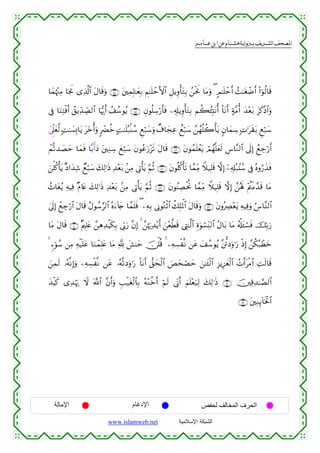 المصحف الشريف برواية هشام عن ابن عامر
قَالُوٓا۟ أَضْغَٰثُ أَحْلَٰمٍ وَمَا نَحْنُ بِتَأْوِيلِ ٱلْأَحْلَٰمِ بِعَٰلِمِينَ وَقَالَ ٱلَّذِى نَجَا مِنْهُمَا
وَٱدَّكَرَ بَعْدَ أُمَّةٍ أَنَا۠ أُنَبِّئُكُم بِتَأْوِيلِهِۦ فَأَرْسِلُونِ يُوسُفُ أَيُّهَا ٱلصِّدِّيقُ أَفْتِنَا فِى
سَبْعِ بَقَرَٰتٍ سِمَانٍ يَأْكُلُهُنَّ سَبْعٌ عِجَافٌ وَسَبْعِ سُنۢبُلَٰتٍ خُضْرٍ وَأُخَرَ يَابِسَٰتٍ لَّعَلِّىٓ
أَرْجِعُ إِلَى ٱلنَّاسِ لَعَلَّهُمْ يَعْلَمُونَ قَالَ تَزْرَعُونَ سَبْعَ سِنِينَ دَأْبًا فَمَا حَصَدتُّمْ
فَذَرُوهُ فِى سُنۢبُلِهِۦٓ إِلَّا قَلِيلًا مِّمَّا تَأْكُلُونَ ثُمَّ يَأْتِى مِنۢ بَعْدِ ذَٰلِكَ سَبْعٌ شِدَادٌ يَأْكُلْنَ
مَا قَدَّمْتُمْ لَهُنَّ إِلَّا قَلِيلًا مِّمَّا تُحْصِنُونَ ثُمَّ يَأْتِى مِنۢ بَعْدِ ذَٰلِكَ عَامٌ فِيهِ يُغَاثُ
ٱلنَّاسُ وَفِيهِ يَعْصِرُونَ وَقَالَ ٱلْمَلِكُ ٱئْتُونِى بِهِۦ فَلَمَّا جَآءَهُ ٱلرَّسُولُ قَالَ ٱرْجِعْ إِلَىٰ
رَبِّكَ فَسْـَٔلْهُ مَا بَالُ ٱلنِّسْوَةِ ٱلَّٰتِى قَطَّعْنَ أَيْدِيَهُنَّ إِنَّ رَبِّى بِكَيْدِهِنَّ عَلِيمٌ قَالَ مَا
خَطْبُكُنَّ إِذْ رَٰوَدتُّنَّ يُوسُفَ عَن نَّفْسِهِۦ قُلْنَ حَٰشَ لِلَّهِ مَا عَلِمْنَا عَلَيْهِ مِن سُوٓءٍ
قَالَتِ ٱمْرَأَتُ ٱلْعَزِيزِ ٱلْـَٰٔنَ حَصْحَصَ ٱلْحَقُّ أَنَا۠ رَٰوَدتُّهُۥ عَن نَّفْسِهِۦ وَإِنَّهُۥ لَمِنَ
ٱلصَّٰدِقِينَ ذَٰلِكَ لِيَعْلَمَ أَنِّى لَمْ أَخُنْهُ بِٱلْغَيْبِ وَأَنَّ ٱللَّهَ لَا يَهْدِى كَيْدَ
ٱلْخَآئِنِينَ
الحرف المخالف لحفص الإدغام الإمالة
الشبكة الإسلامية www.islamweb.net